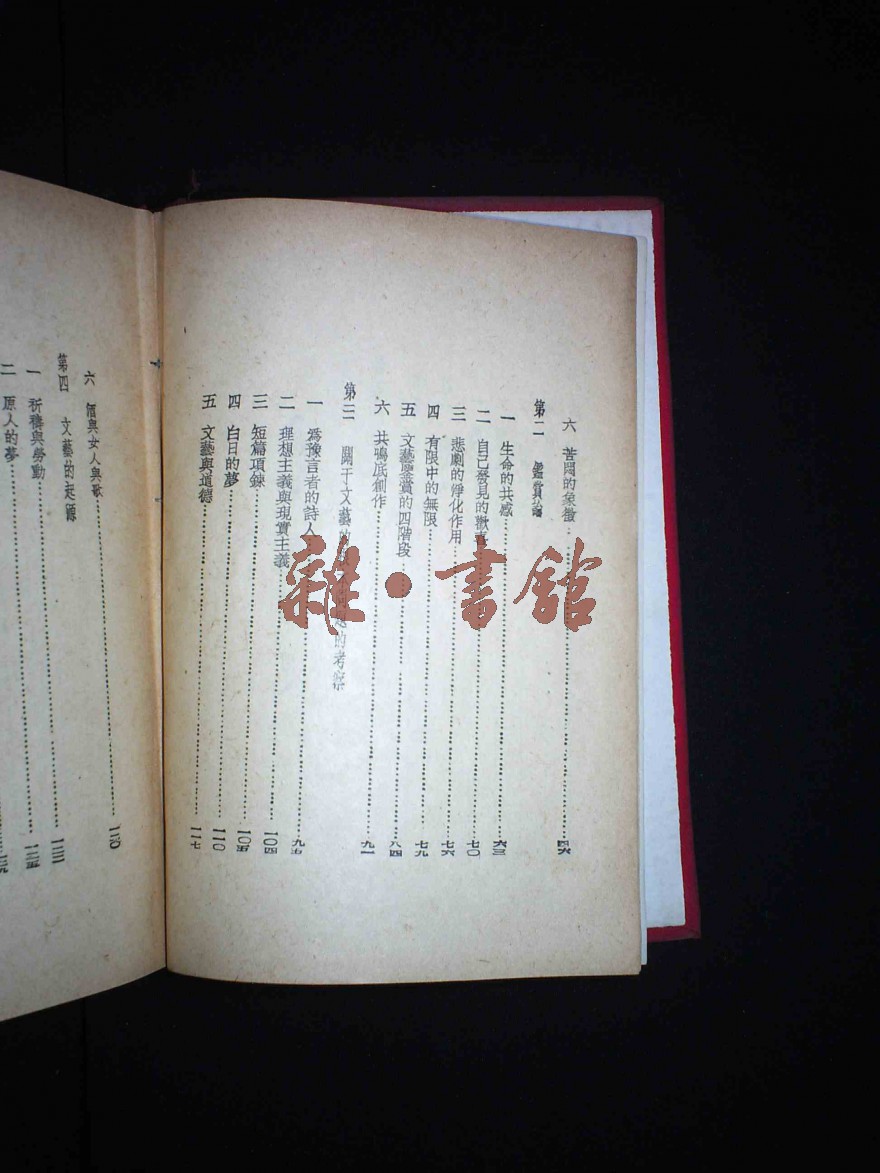 六 苦悶的象徵 四六
第二 鑑賞論
一 生命的共感 六三
二 自己發見的歡喜 七〇
三 悲劇的淨化作用 七六
四 有限中的無限 七九
五 文藝鑒賞的四階段 八四
六 共鳴底創作 九一
第三 關于文藝的 的考察
一 為豫言者的詩人 九七
二 理想主義與現實主義 一〇四
三 短篇項鍊 一〇五
四 白日的夢 一一〇
五 文藝與道德 一一七
六 酒與女人與歌 一二〇
第四 文藝的起源 一二三
一 祈禱與勞動 一二五
二 原人的夢
雜·書館